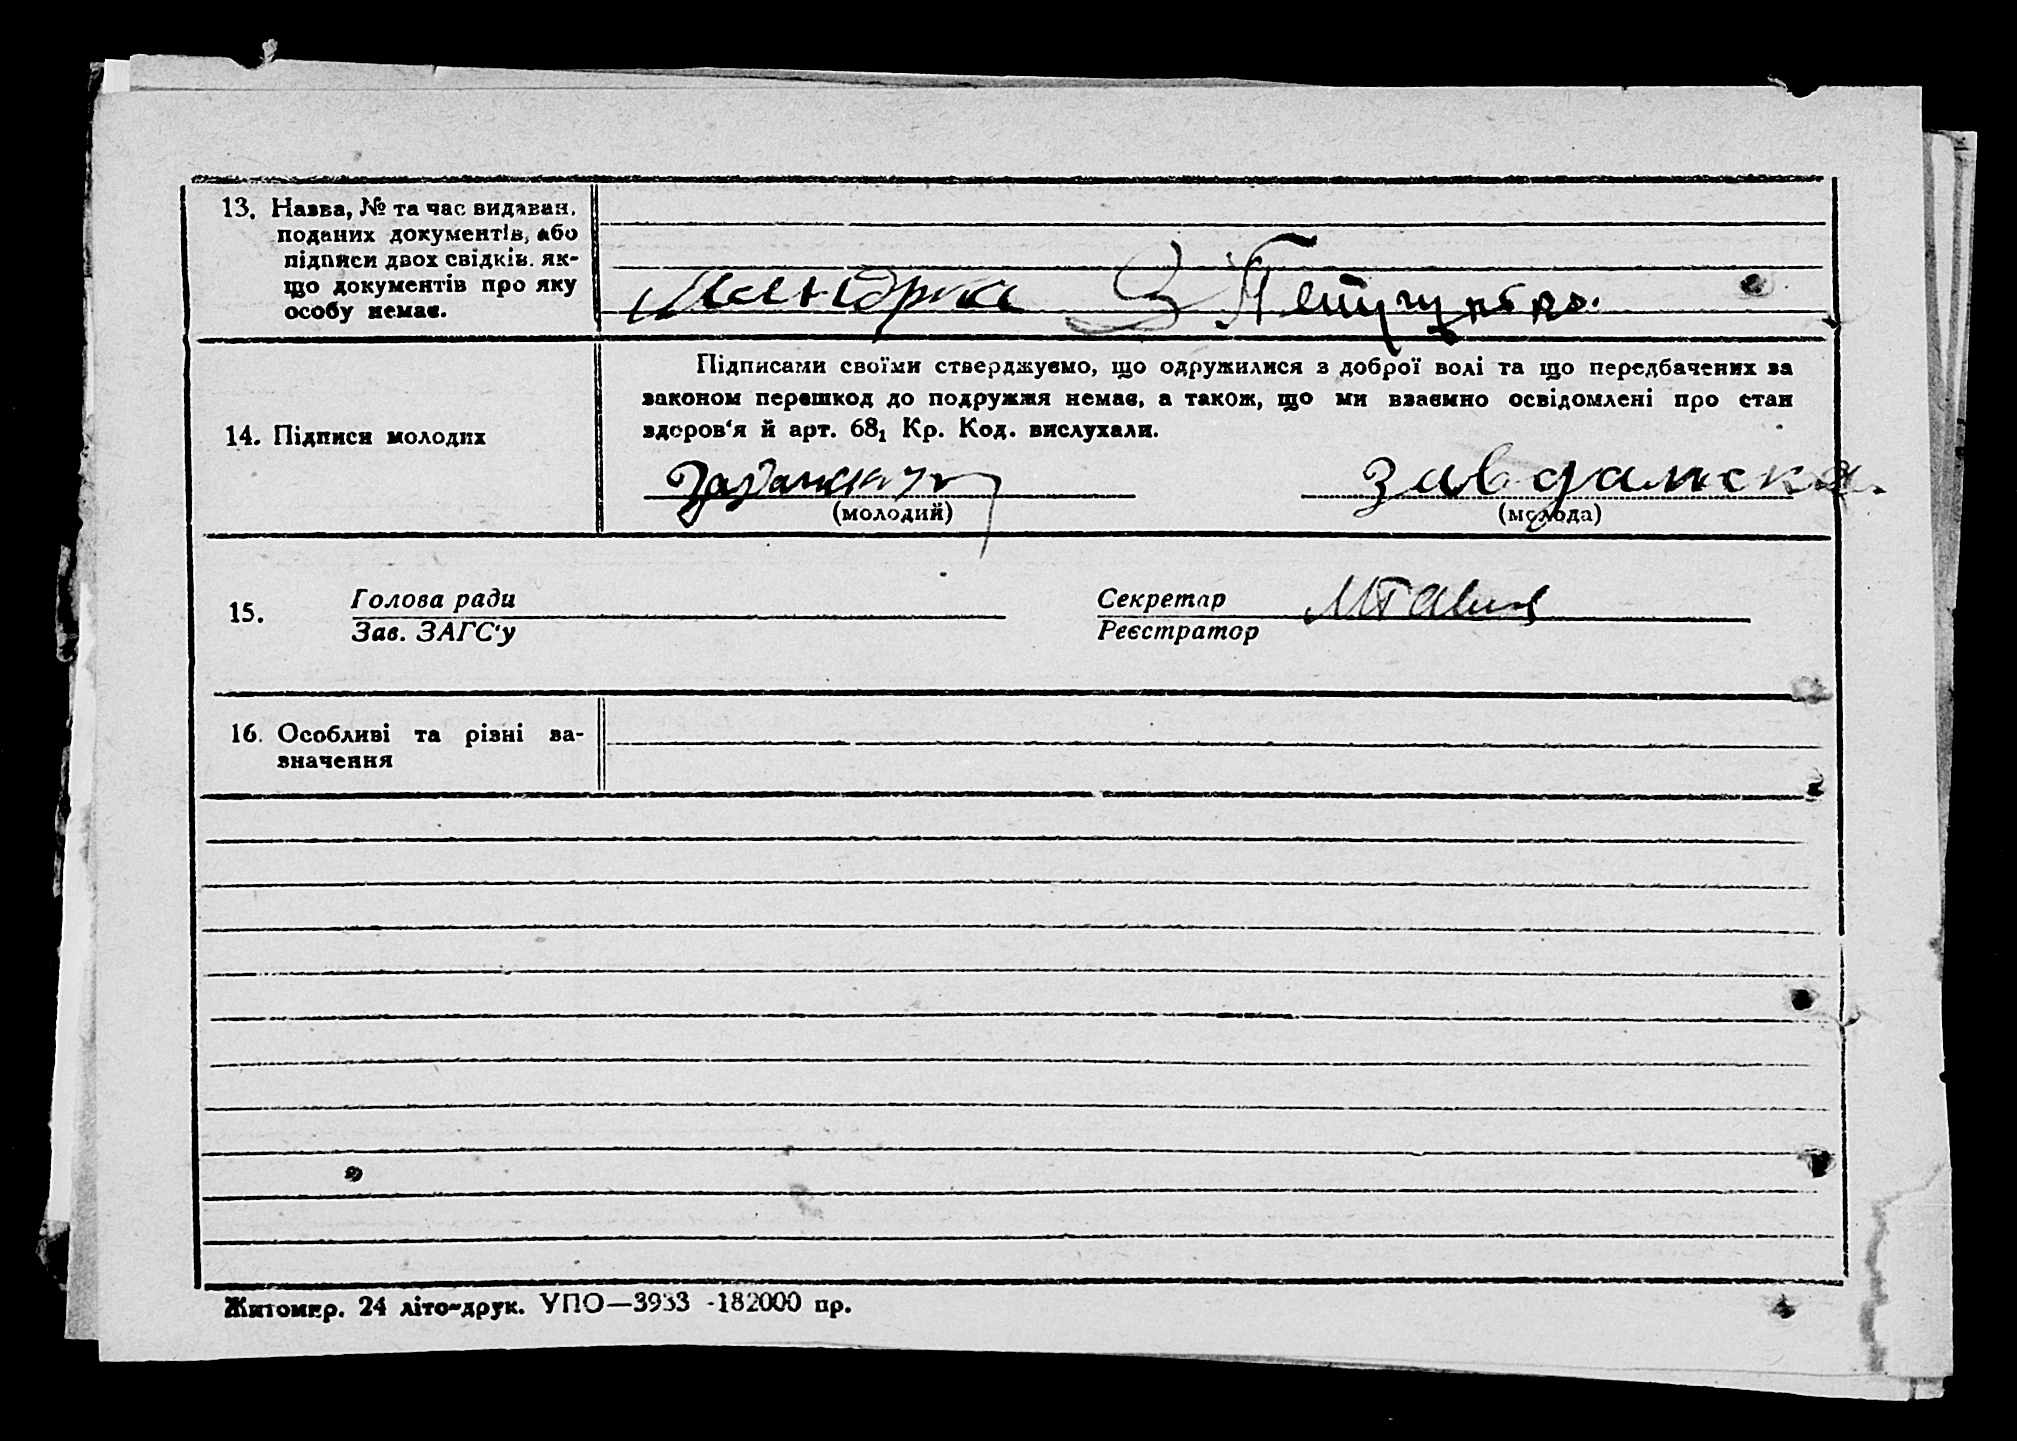 13. Назва, № та час видаван.
поданих документів, або
підписи двох свідків, як-
що документів про яку
особу немає.
Мандрика З
Підписами своїми стверджуємо, що одружилися з доброї волі та що передбачених за
законом перешкод до подружжя немає, а також, що ми взаємно освідомлені про стан
здоров'я й арт. 68₁ Кр. Код. вислухали.
14. Підписи молодих
Завданска.
(молодий) (молода)
15. Голова ради Секретар
Зав. ЗАГС'у Реєстратор
16. Особливі та різні за-
значення
Житомир. 24 літо-друк. УПО—3933 -182000 пр.